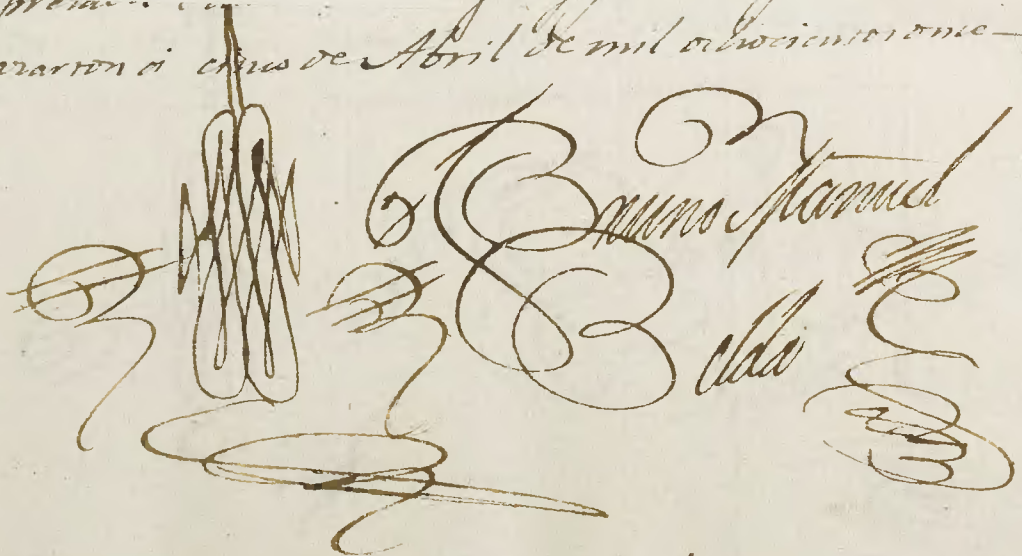 a cinco de Abril de mil ochocientos once
Bruno Manuel
Belda